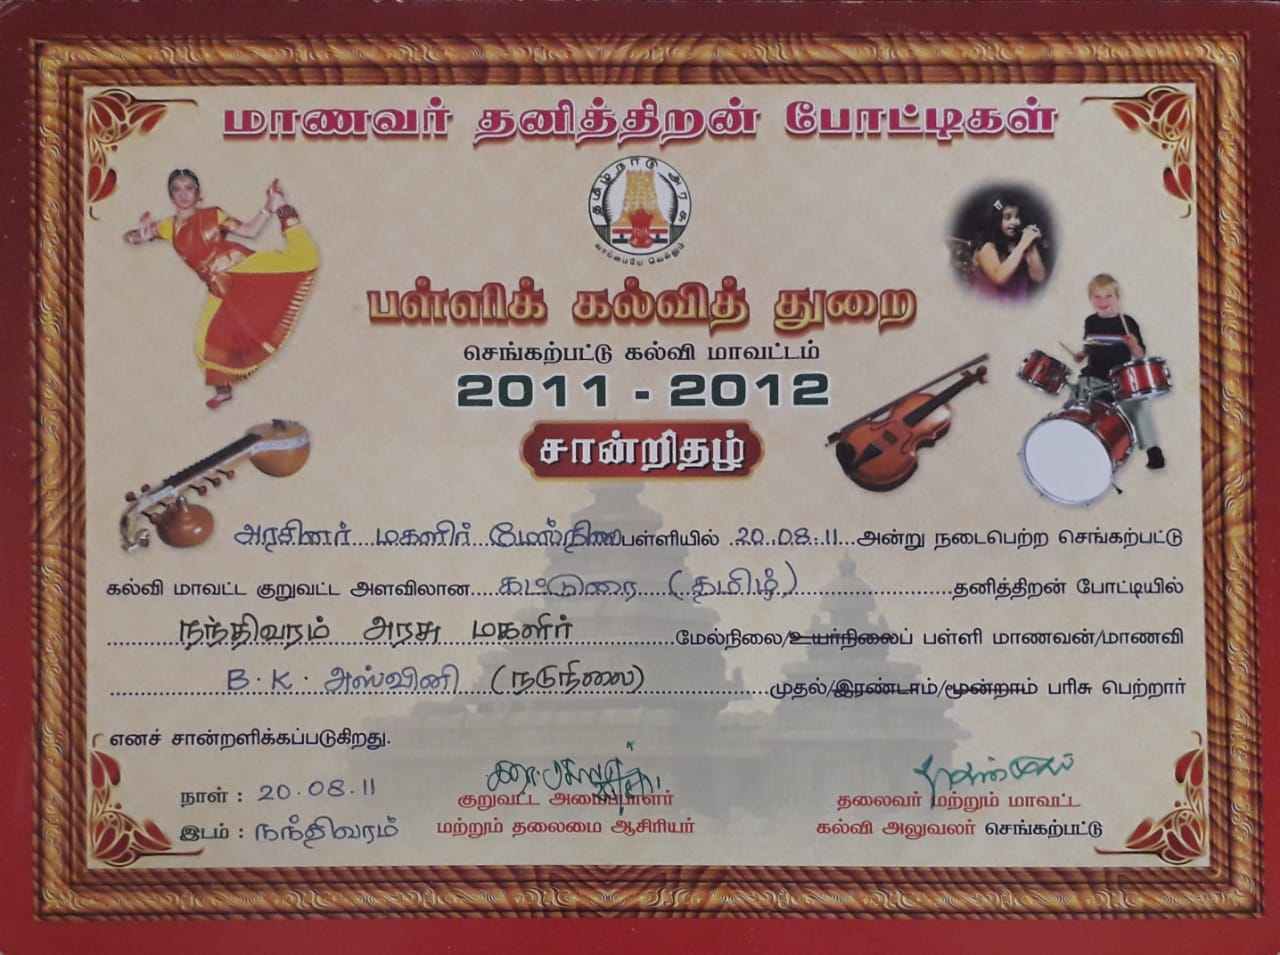 மாணவர் தனித்திறன் போட்டிகள்
தமிழ்நாடு அரசு
வாய்மையே வெல்லும்
பள்ளிக் கல்வித் துறை
செங்கற்பட்டு கல்வி மாவட்டம்
2011 - 2012
சான்றிதழ்
அரசினர் மகளிர் மேல்நிலை பள்ளியில் 20.08.11 அன்று நடைபெற்ற செங்கற்பட்டு
கல்வி மாவட்ட குறுவட்ட அளவிலான கட்டுரை (தமிழ்) தனித்திறன் போட்டியில்
நந்திவரம் அரசு மகளிர் மேல்நிலை/உயர்நிலைப் பள்ளி மாணவன்/மாணவி
B.K. அஸ்வினி (நடுநிலை) முதல்/இரண்டாம்/மூன்றாம் பரிசு பெற்றார்
எனச் சான்றளிக்கப்படுகிறது.
நாள் : 20.08.11
இடம் : நந்திவரம்
குறுவட்ட அமைப்பாளர்
மற்றும் தலைமை ஆசிரியர்
தலைவர் மற்றும் மாவட்ட
கல்வி அலுவலர் செங்கற்பட்டு